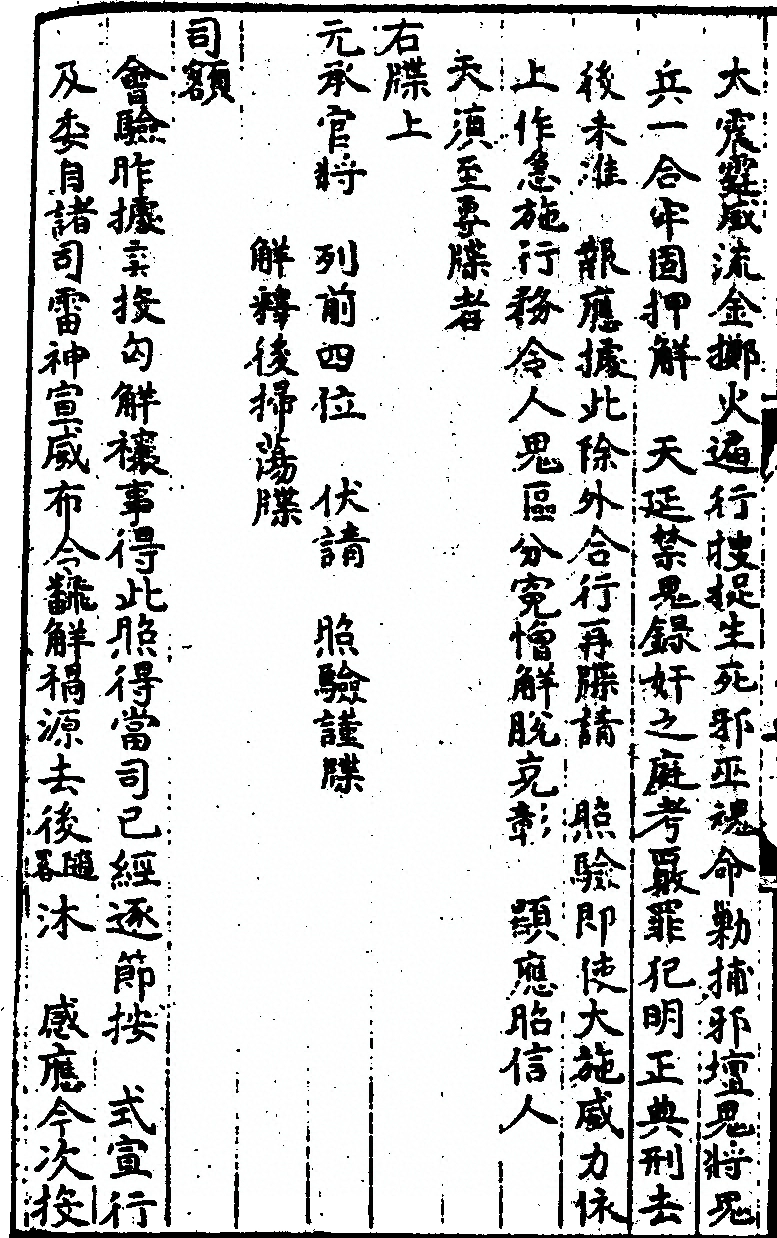 太震霆威流金擲火遍行搜捉生死邪巫魂命勦捕邪壇鬼將鬼
兵一合牢固押解　天延禁鬼錄奸之庭考覈罪犯明正典刑去
後未准　報應據此除外合行再牒請　照驗即使大施威力依
上作急施行務令人鬼區分寃憎解脫克彰　顯應昭信人
天湏至專牒者
右牒上
元承官將　列前四位　伏請　照驗謹牒
解釋後掃蕩牒
司額
會驗昨據云云投勾解禳事得此照得當司已經逐節按　式宣行
及委自諸司雷神宣威布令翻解禍源去後沐　感應今次投